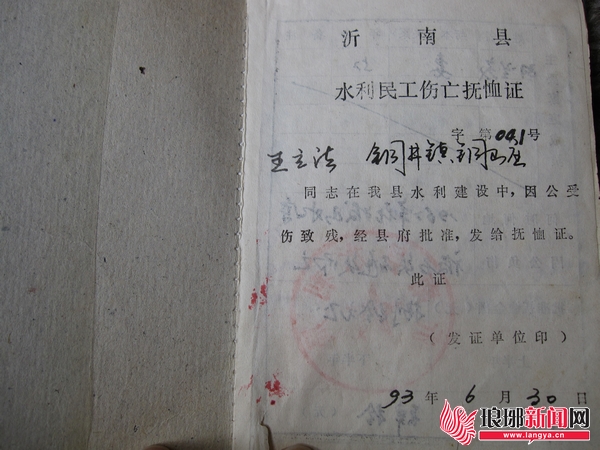 沂南县
水利民工伤亡抚恤证
字第041号
王立法 铜井镇
同志在我县水利建设中，因公受
伤致残，经县府批准，发给抚恤证。
此证
（发证单位印）
93年6月30日
琅琊新闻网
www.langya.cn